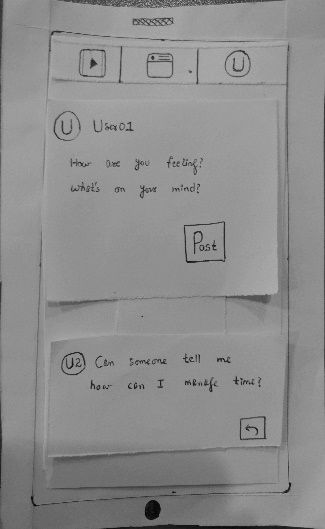 U
U User01
How are you feeling?
what's on your mind?
Post
U2 Can someone tell me
how can I manage time?